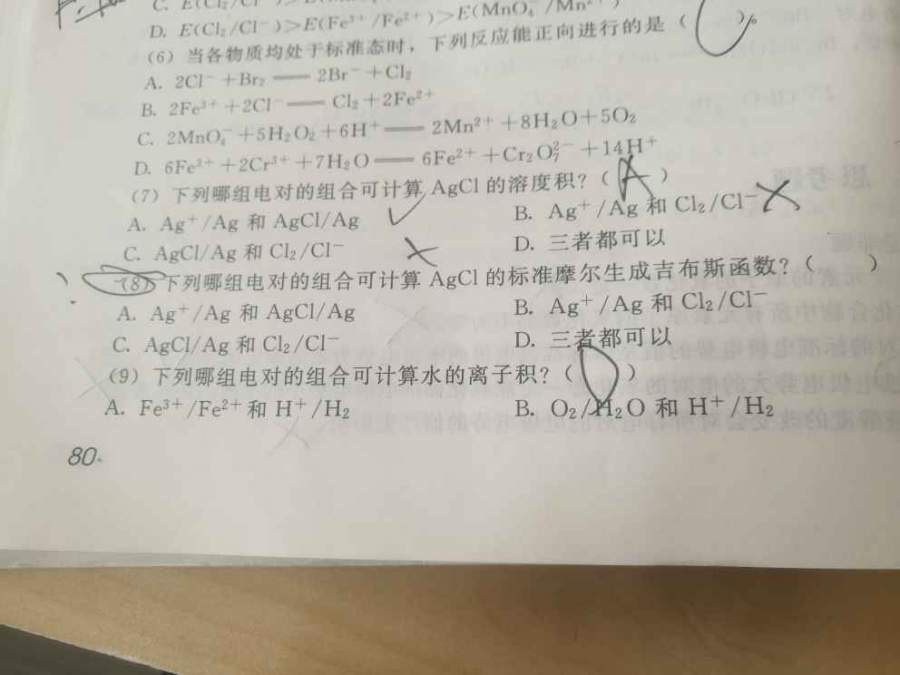 D. E(Cl₂/Cl⁻)>E(Fe³⁺/Fe²⁺)>E(MnO₄⁻/Mn²⁺)
(6) 当各物质均处于标准态时，下列反应能正向进行的是（ ）。
A. 2Cl⁻+Br₂══2Br⁻+Cl₂
B. 2Fe³⁺+2Cl⁻══Cl₂+2Fe²⁺
C. 2MnO₄⁻+5H₂O₂+6H⁺══2Mn²⁺+8H₂O+5O₂
D. 6Fe³⁺+2Cr³⁺+7H₂O══6Fe²⁺+Cr₂O₇²⁻+14H⁺
(7) 下列哪组电对的组合可计算 AgCl 的溶度积？（ A ）
A. Ag⁺/Ag 和 AgCl/Ag ✓ B. Ag⁺/Ag 和 Cl₂/Cl⁻ ×
C. AgCl/Ag 和 Cl₂/Cl⁻ × D. 三者都可以
(8) 下列哪组电对的组合可计算 AgCl 的标准摩尔生成吉布斯函数？（ ）
A. Ag⁺/Ag 和 AgCl/Ag B. Ag⁺/Ag 和 Cl₂/Cl⁻
C. AgCl/Ag 和 Cl₂/Cl⁻ D. 三者都可以
(9) 下列哪组电对的组合可计算水的离子积？（ D ）
A. Fe³⁺/Fe²⁺ 和 H⁺/H₂ B. O₂/H₂O 和 H⁺/H₂
80